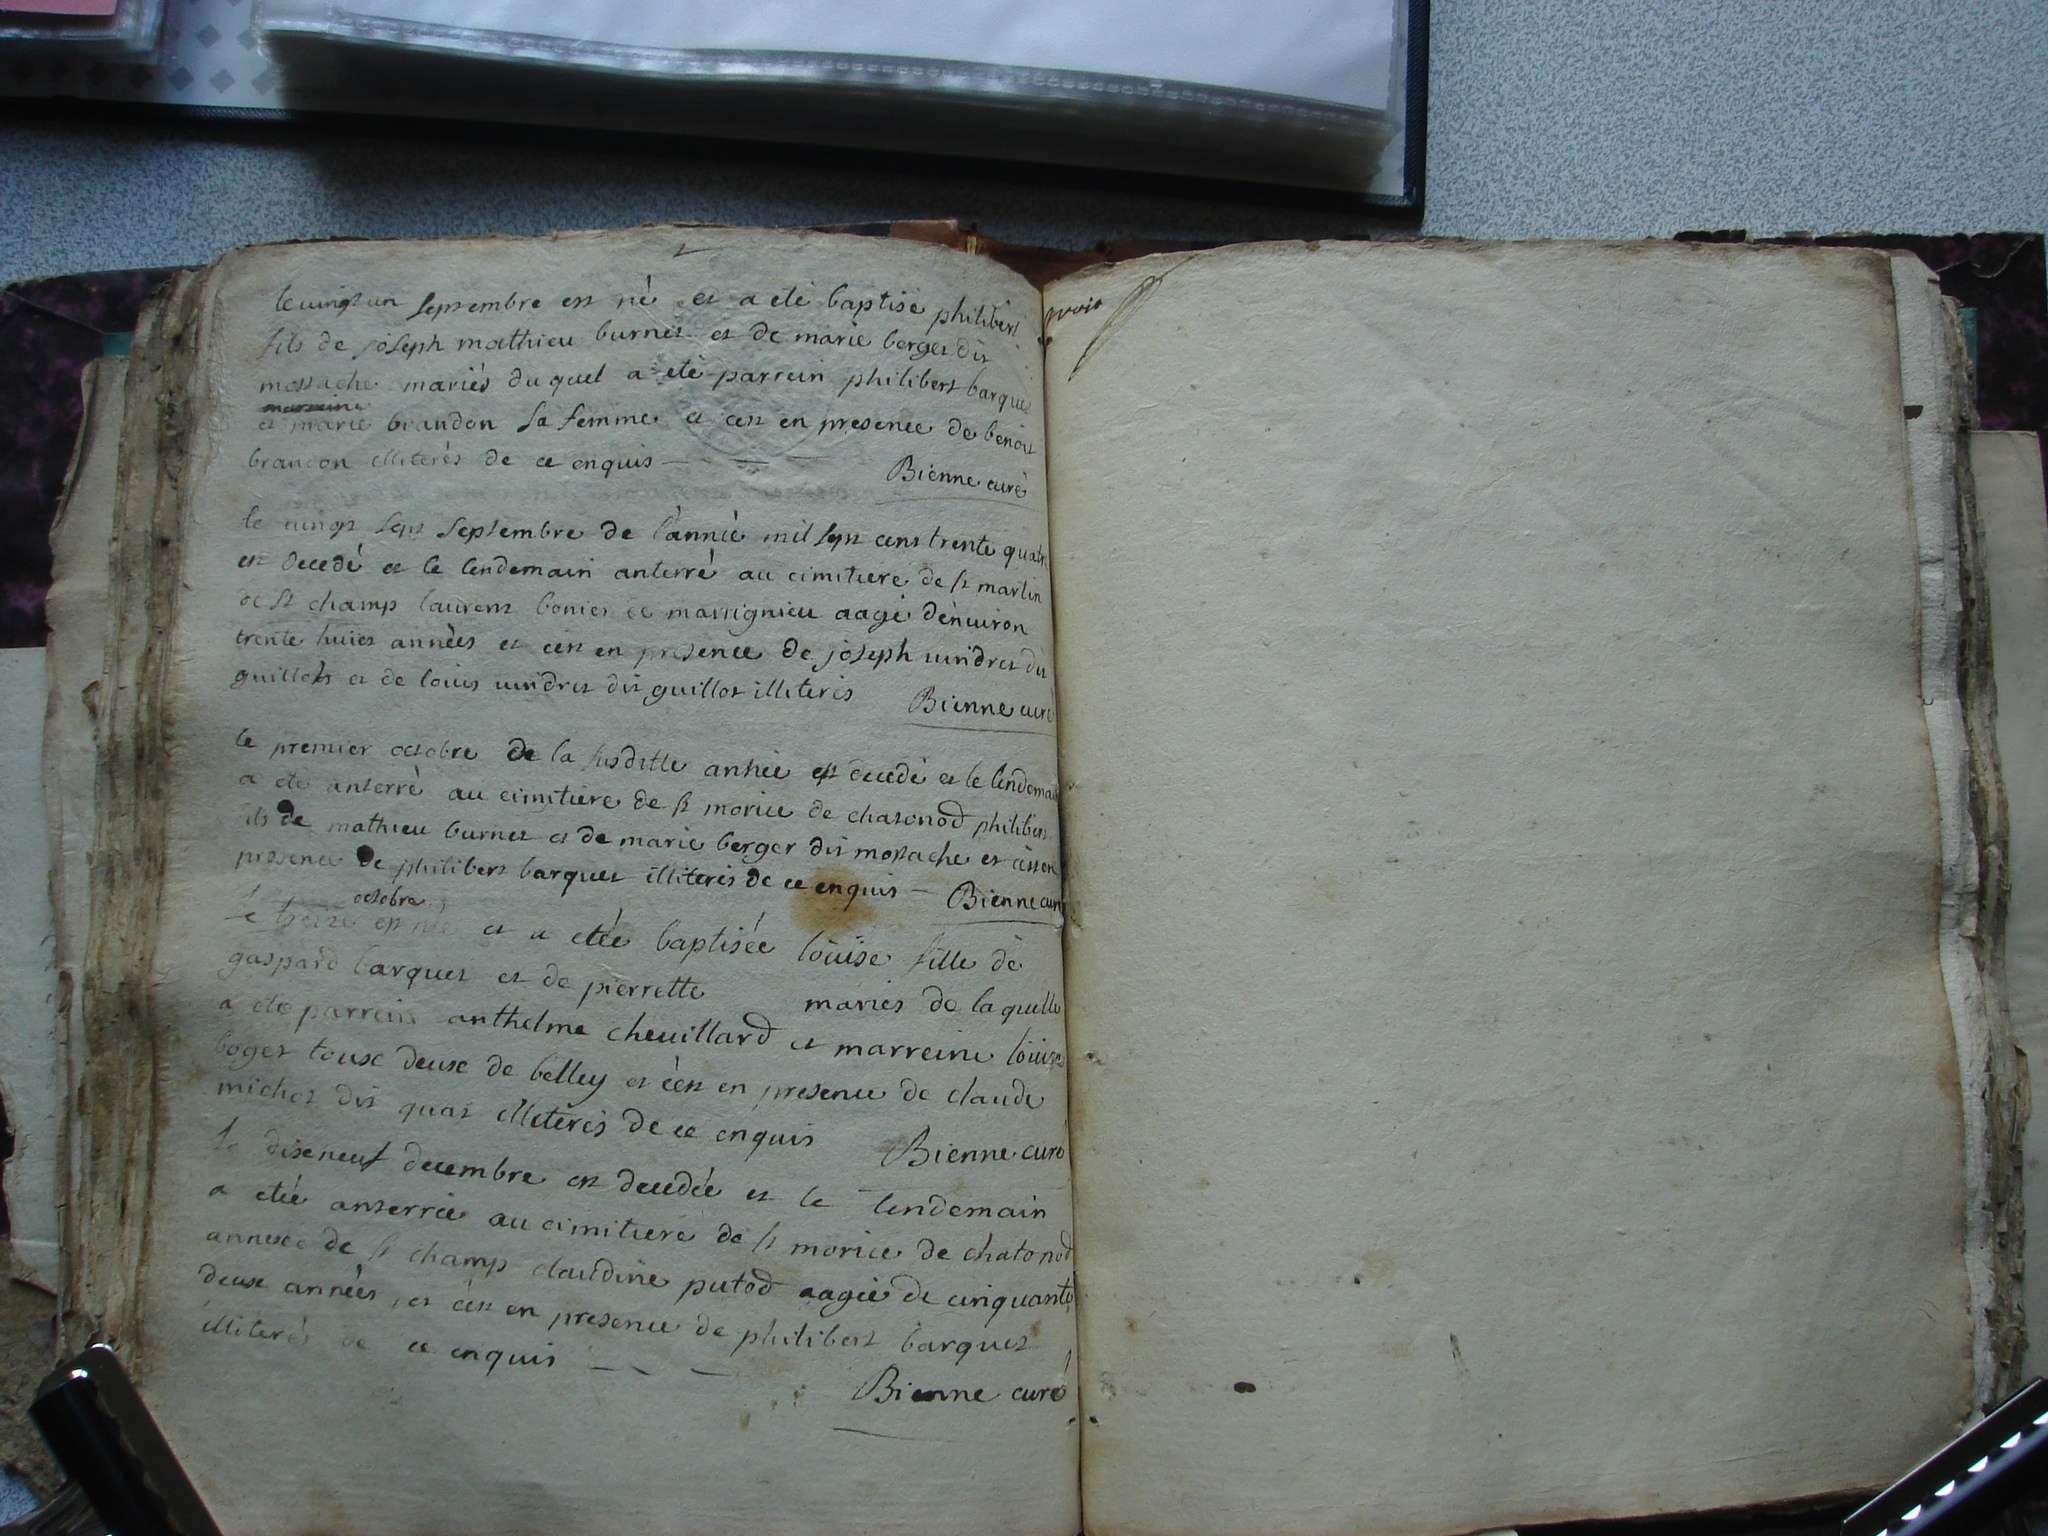 le vingt un septembre est né et a eté baptisé philibert
fils de joseph mathieu burnet et de marie berger dit
mostache mariés du quel a eté parrein philibert barquet
marreine
et marie brandon sa femme et cest en presence de benoit
brandon illiterés de ce enquis
Bienne curé
le vingt sept septembre de l'année mil sept cens trente quatre
est decedé et le lendemain anterré au cimitiere de st martin
de st champ laurent bonier de massignieu aagé d'environ
trente huict années et cest en presence de joseph vuidret dit
guillot et de louis vuidret dit guillot illiterés
Bienne curé
le premier octobre de la susditte année est decedé et le lendemain
a eté anterré au cimitiere de st morice de chatonod philibert
fils de mathieu burnet et de marie berger dit mostache et c'est en
presence de philibert barquet illiterés de ce enquis
Bienne curé
octobre
le treize est née et a etée baptisée loüise fille de
gaspard barquet et de pierrette mariés de la quelle
a eté parrein anthelme chevillard et marreine loüise
boget touse deuse de belley et c'est en presence de claude
michot dit quat illiterés de ce enquis
Bienne curé
le diseneuf decembre est decedée et le lendemain
a etée anterrée au cimitiere de st morice de chatonod
annexe de st champ claudine putod aagée de cinquante
deuse années et c'est en presence de philibert barquet
illiterés de ce enquis
Bienne curé